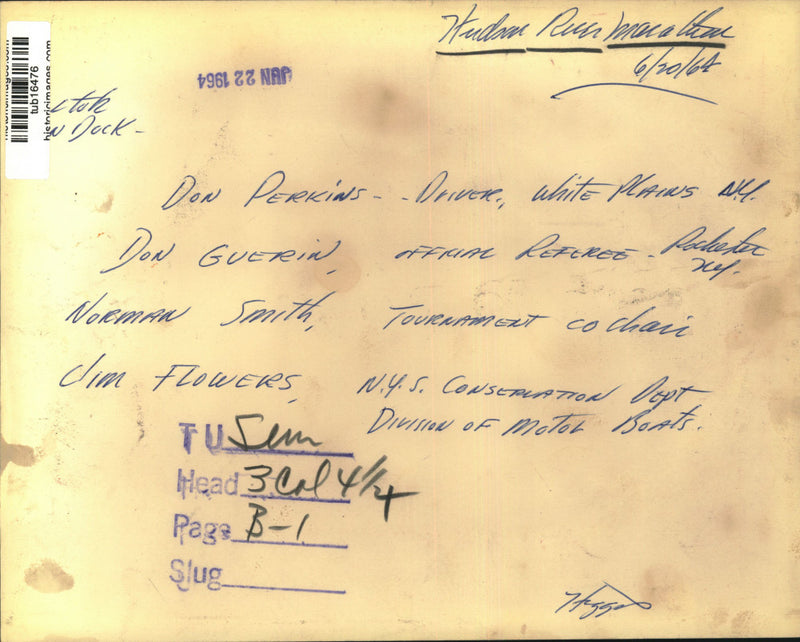 Hudson River Marathon
6/20/64
JUN 22 1964
tub16476
historicimages.com
Dock -
Don Perkins - - Driver, White Plains N.Y.
Don Guerin, official Referee - Rochester
N.Y.
Norman Smith, Tournament co chair
Jim Flowers, N.Y.S. Conservation Dept
Division of Motor Boats.
TU
Head 3 Col 4 1/2
Page B-1
Slug